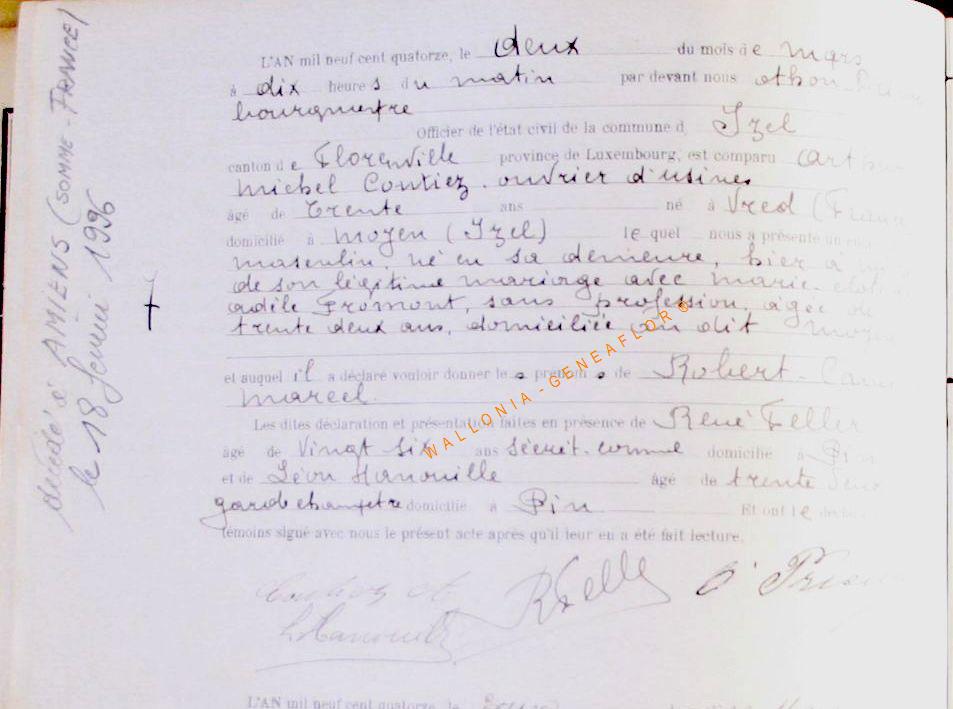 décédé à AMIENS (SOMME - FRANCE)
le 18 février 1996
L'AN mil neuf cent quatorze, le deux du mois de mars
à dix heures du matin par devant nous othon
bourgmestre
Officier de l'état civil de la commune d Izel
canton de Florenville province de Luxembourg, est comparu
michel Contiez, ouvrier d'usines
âgé de trente ans né à Vred (France
domicilié à moyen (Izel) lequel nous a présenté un
masculin, né en sa demeure, hier à
de son légitime mariage avec marie
adile Fromont, sans profession, agée de
trente deux ans, domiciliée au dit moyen
et auquel il a déclaré vouloir donner le prénom de Robert
marcel.
Les dites déclaration et présentation faites en présence de René Feller
âgé de Vingt six ans secrét. comme domicilié à Pin
et de Léon Hanouille âgé de trente
garde champêtre domicilié à Pin Et ont le
témoins signé avec nous le présent acte après qu'il leur en a été fait lecture.
RFeller
L Hanouille
WALLONIA - GENEAFLOR
L'AN mil neuf cent quatorze, le